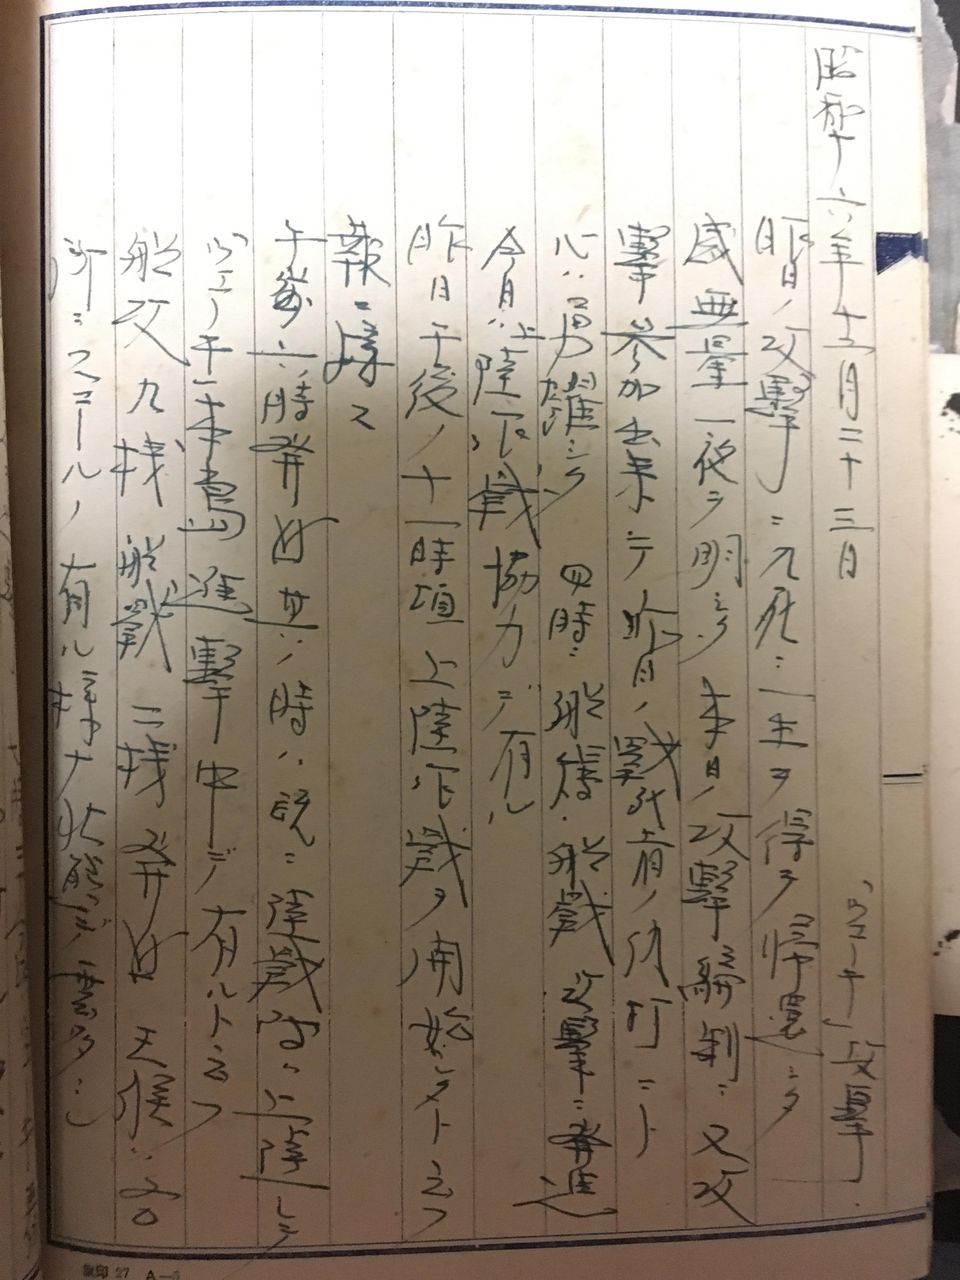 昭和十六年十二月二十三日 「ウエーキ」攻撃
昨日ノ攻撃ニ九死ニ一生ヲ得テ帰還シタ
感無量一夜ヲ明シ 本日ノ攻撃編制ニ又攻
撃参加出来テ昨日ノ戦死者ノ仇打ニト
心ハ勇躍シ 四時ニ 攻撃ニ発進
今日ハ上陸作戦協力デ有ル
昨日午後ノ十一時頃上陸作戦ヲ開始シタト云フ
報ニ接ス
午前六時発進 其ノ時ハ既ニ陸戦隊ハ上陸シテ
ウエーキ本島進撃中デ有ルト云フ
攻 九機 二機 発進 天候ハ
所ニスコールノ有ル様ナ状態デ雲多シ
敷印27 A-5